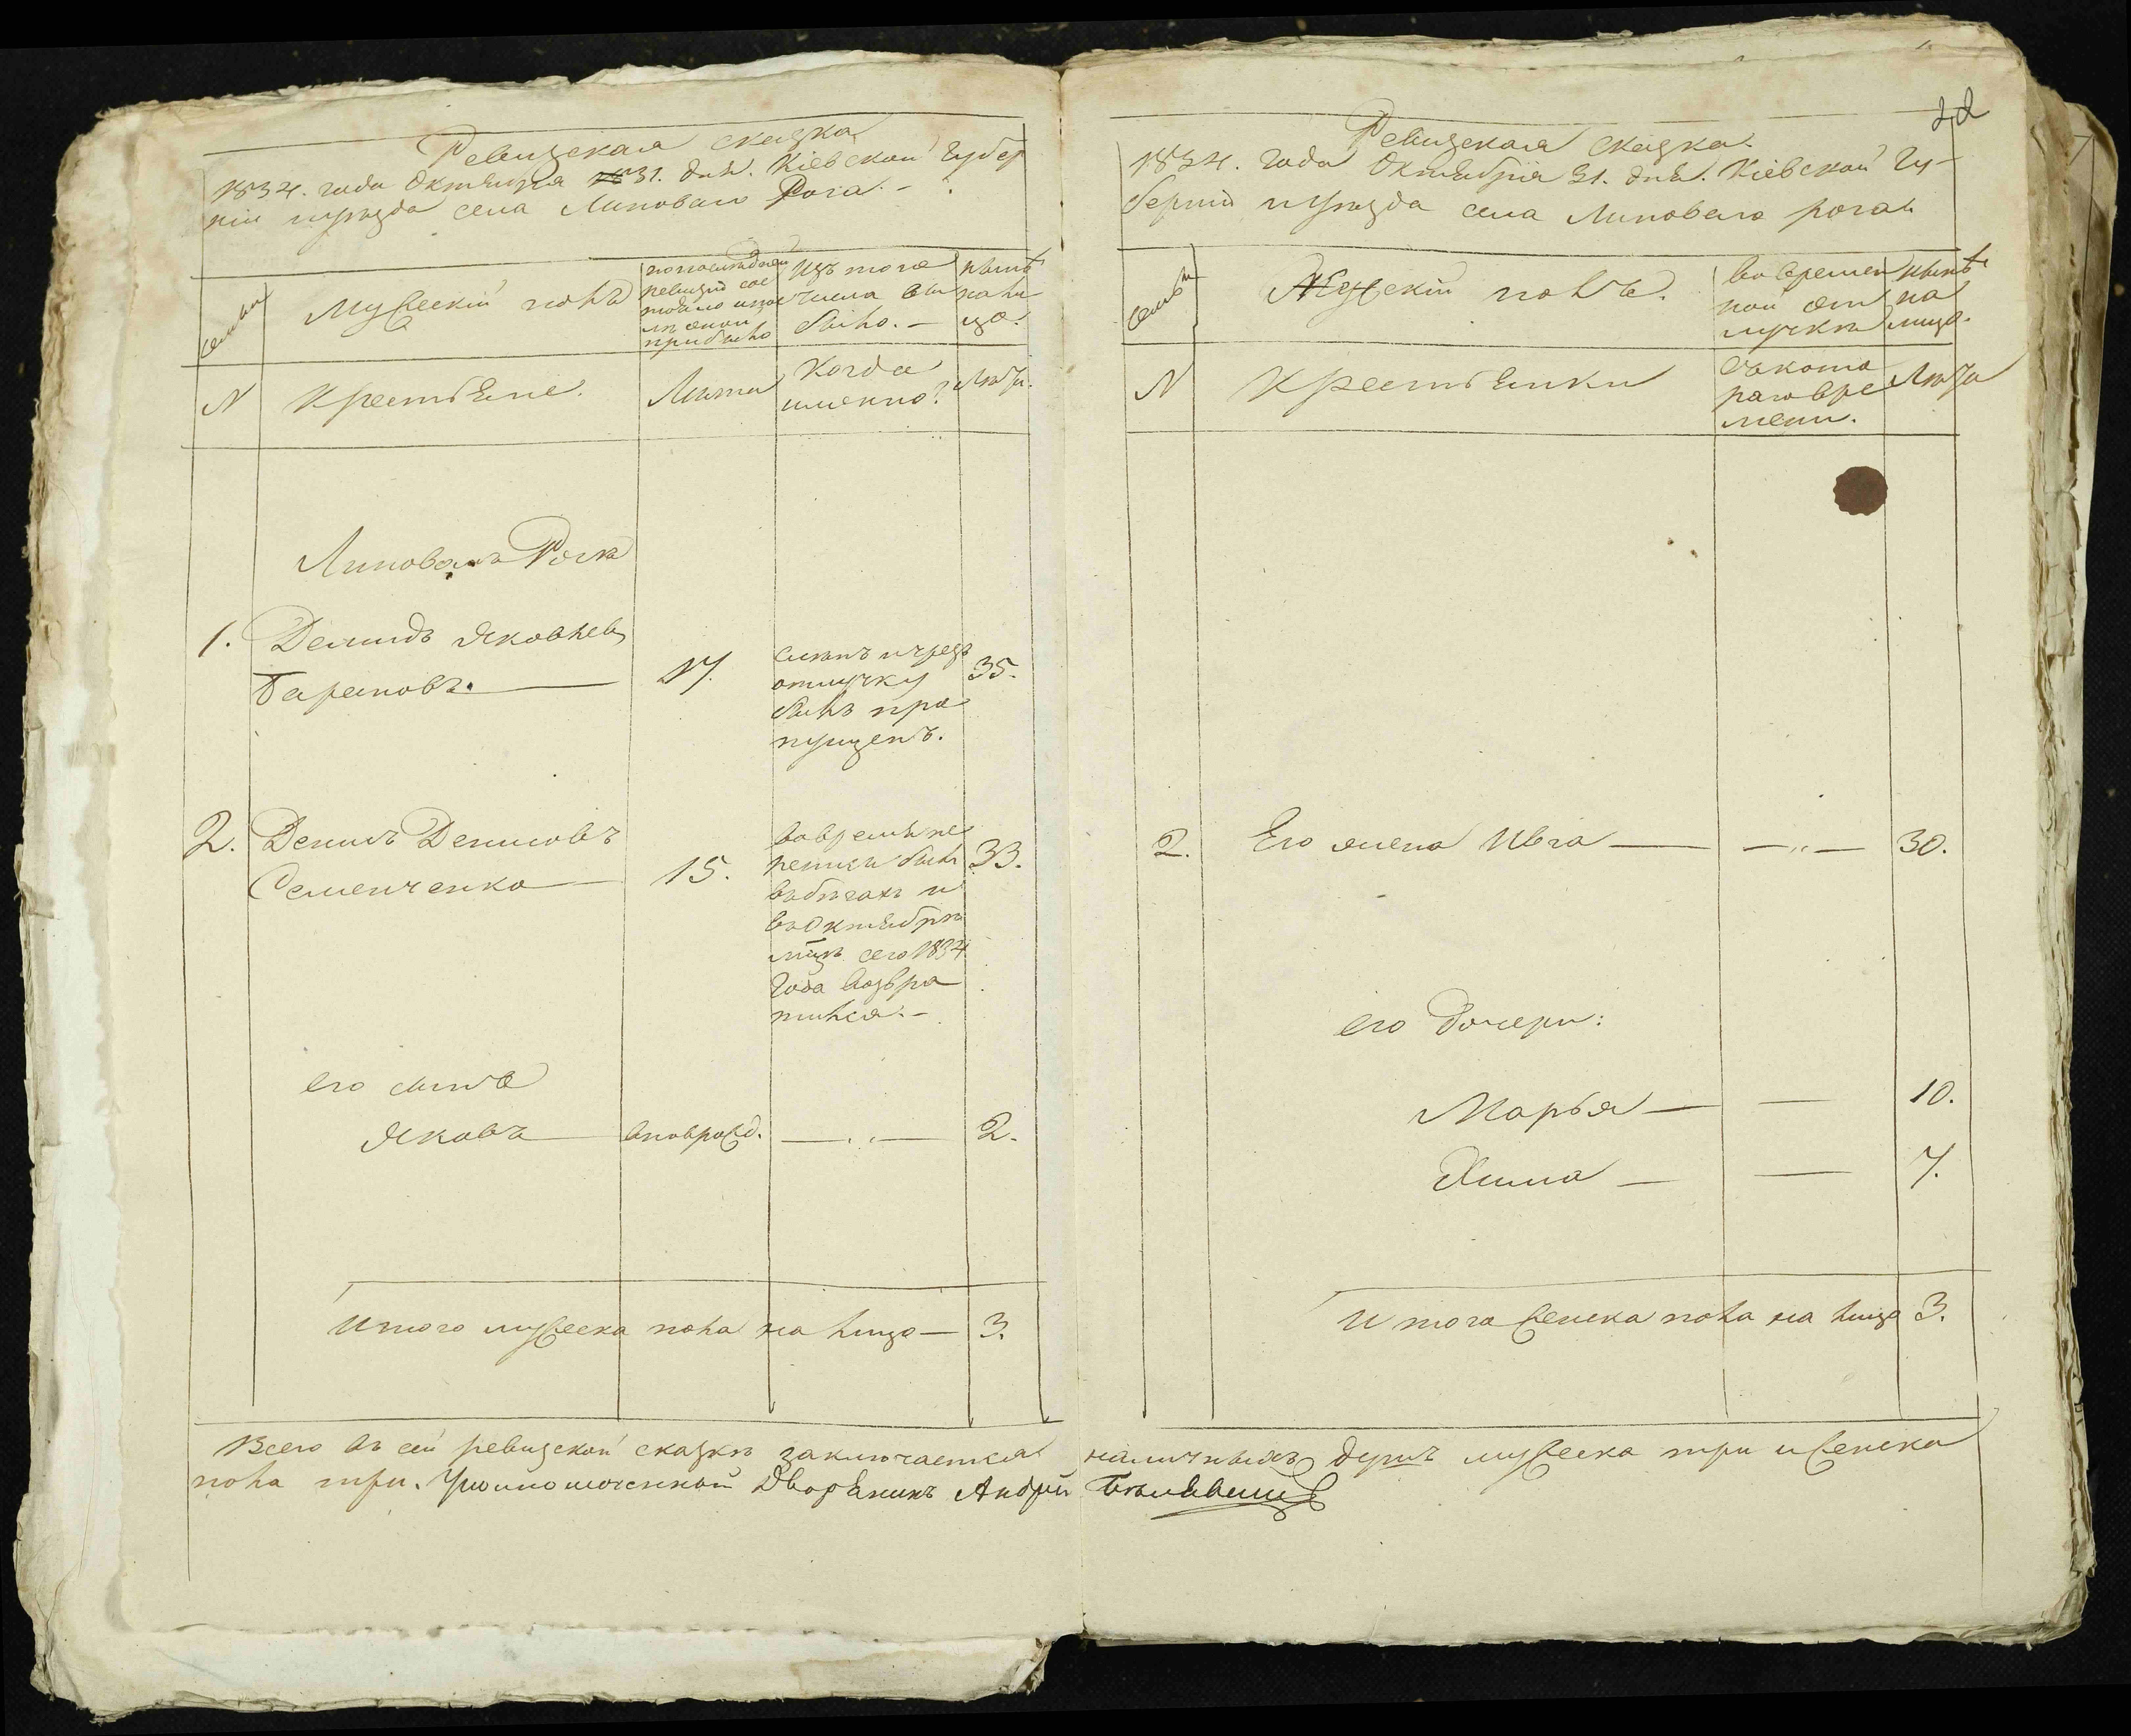 Ревизская сказка
1834. года Октября 31. дня. Кіевской Губер
ніи уѣзда села Липоваго Рога. –
Семьи
Мужескій полъ
по послѣдней ревизіи состояло и послѣ оной прибыло
Изъ того числа выбыло. –
нынѣ на лицо.
N
Крестьяне.
Лѣта
Когда именно?
Лѣта.
Липовомъ Рогѣ
1. Демидъ Яковлевъ
Барановъ. — 17. 35.
отлучку
былъ про
пущенъ.
2. Денисъ Денисовъ
Семенченко — 15. 33.
во время ре
ревизіи былъ
въ бѣгахъ и
въ Октябрѣ
мцѣ сего 1834
года возвра
тился. –
его сынъ
Яковъ — вноврожд. — „ — 2.
Итого мужеска пола на лицо — 3.
22
Ревизская сказка.
1834. года Октября 31. дня. Кіевской Гу-
берніи уѣзда села Липоваго рога.
Семьи
Женскій полъ.
во времен
ной от
лучкѣ
нынѣ
на
лицо.
N
Крестьянки
съ кото
раго вре
мени.
Лѣта
2. Его жена Ивга — — „ — 30.
его дочери:
Марья — — 10.
Химa — — 7.
Итого женска пола на лицо 3.
Всего въ сей ревизской сказкѣ заключается наличныхъ душъ мужеска три и женска
пола три. Уполномоченный Дворянинъ Андрій